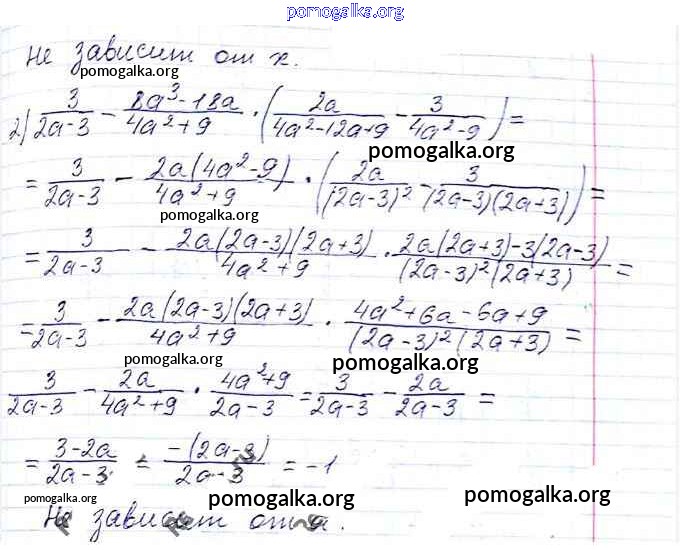 pomogalka.org
не зависит от x.
pomogalka.org
2) 3/(2a-3) - (8a³-18a)/(4a²+9) · (2a/(4a²-12a+9) - 3/(4a²-9)) =
pomogalka.org
= 3/(2a-3) - 2a(4a²-9)/(4a²+9) · (2a/(2a-3)² - 3/((2a-3)(2a+3))) =
pomogalka.org
= 3/(2a-3) - 2a(2a-3)(2a+3)/(4a²+9) · (2a(2a+3)-3(2a-3))/((2a-3)²(2a+3)) =
= 3/(2a-3) - 2a(2a-3)(2a+3)/(4a²+9) · (4a²+6a-6a+9)/((2a-3)²(2a+3)) =
pomogalka.org pomogalka.org
3/(2a-3) - 2a/(4a²+9) · (4a²+9)/(2a-3) = 3/(2a-3) - 2a/(2a-3) =
= (3-2a)/(2a-3) = -(2a-3)/(2a-3) = -1
pomogalka.org pomogalka.org pomogalka.org
Не зависит от a.